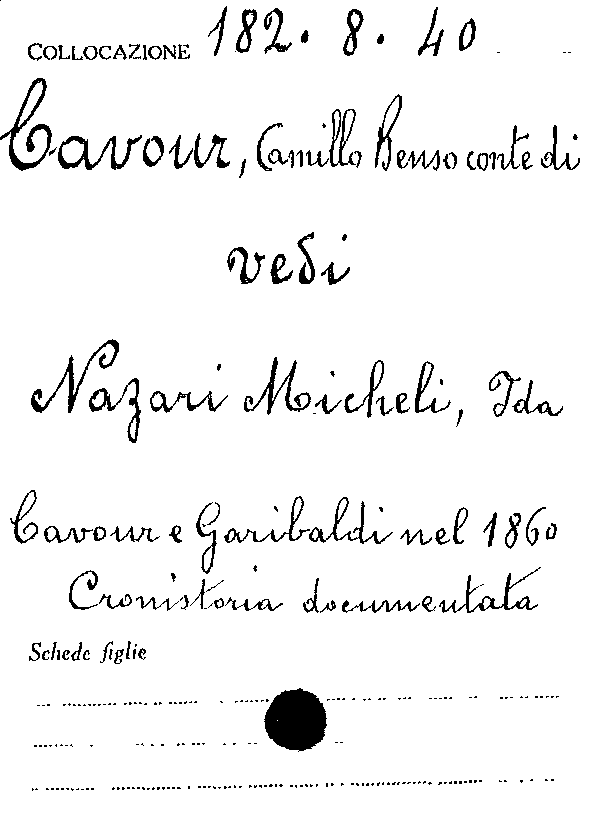 COLLOCAZIONE 182. 8. 40
Cavour, Camillo Benso conte di
vedi
Nazari Micheli, Ida
Cavour e Garibaldi nel 1860
Cronistoria documentata
Schede figlie